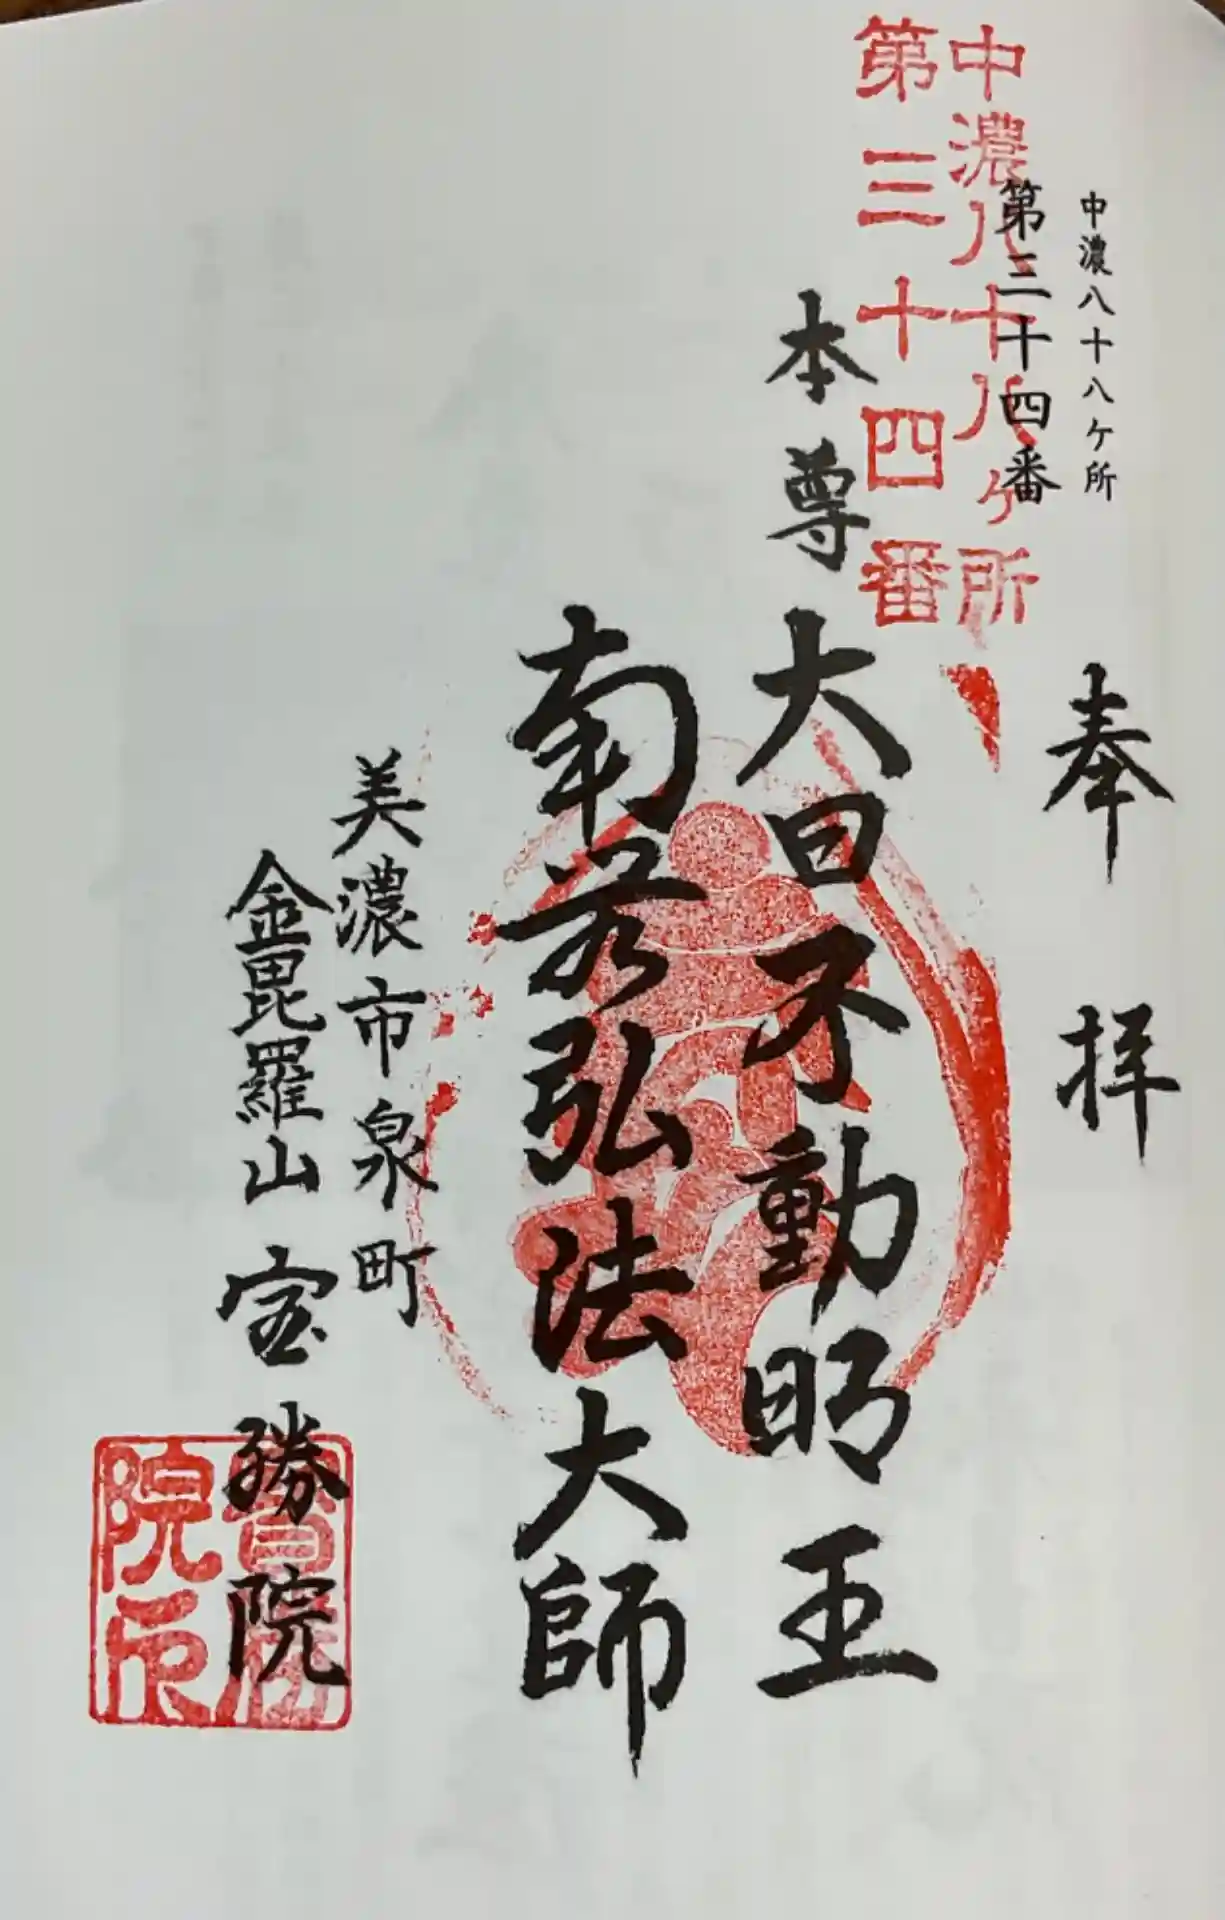 中濃八十八ケ所
第三十四番
奉拝
中濃八十八ヶ所
第三十四番
本尊 大日不動明王
南無弘法大師
美濃市泉町
金毘羅山 宝勝院
寶勝
院印